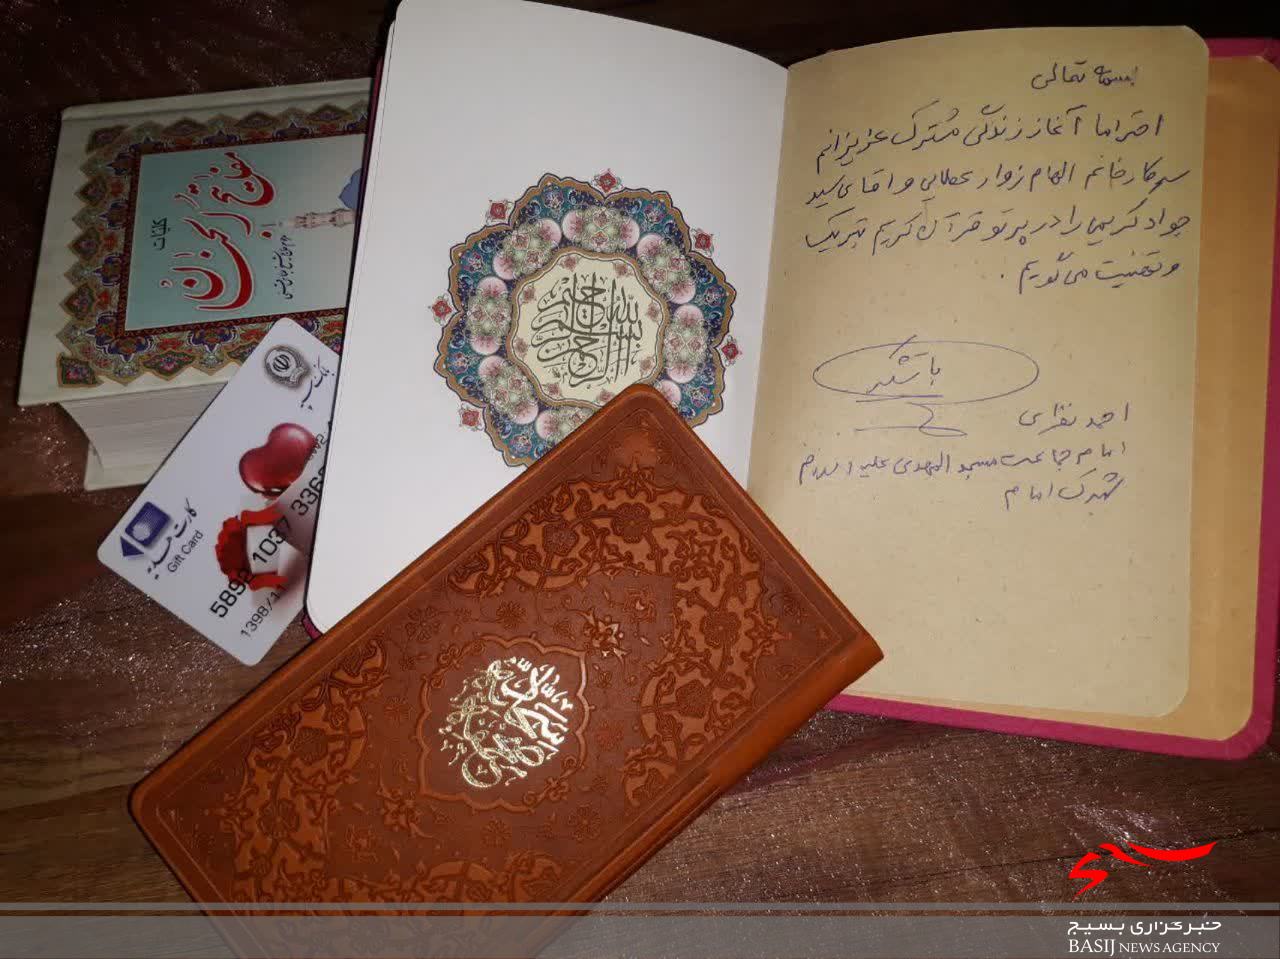 بسمه تعالی
احتراما آغاز زندگی مشترک عزیزانم
سرکار خانم الهام زوار عطایی و اقای سید
جواد کریمی را در پرتو قرآن کریم تبریک
و تهنیت می گویم .
با تشکر
احمد نظری
امام جماعت مسجد المهدی علیه السلام
شهرک امام
بسم الله الرحمن الرحیم
کلیات
مفاتیح الجنان
بانک سپه
کارت هدیه
Gift Card
5892 1037 336
1398/11
القرآن الکریم
خبرگزاری بسیج
BASIJ NEWS AGENCY